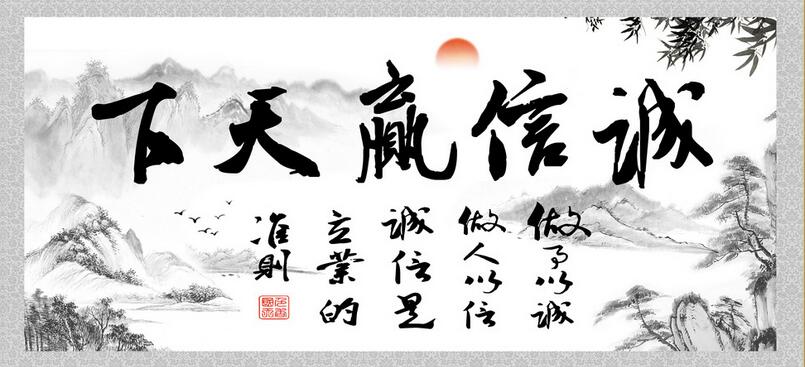 誠信贏天下
做事以誠
做人以信
誠信是
立業的
准則